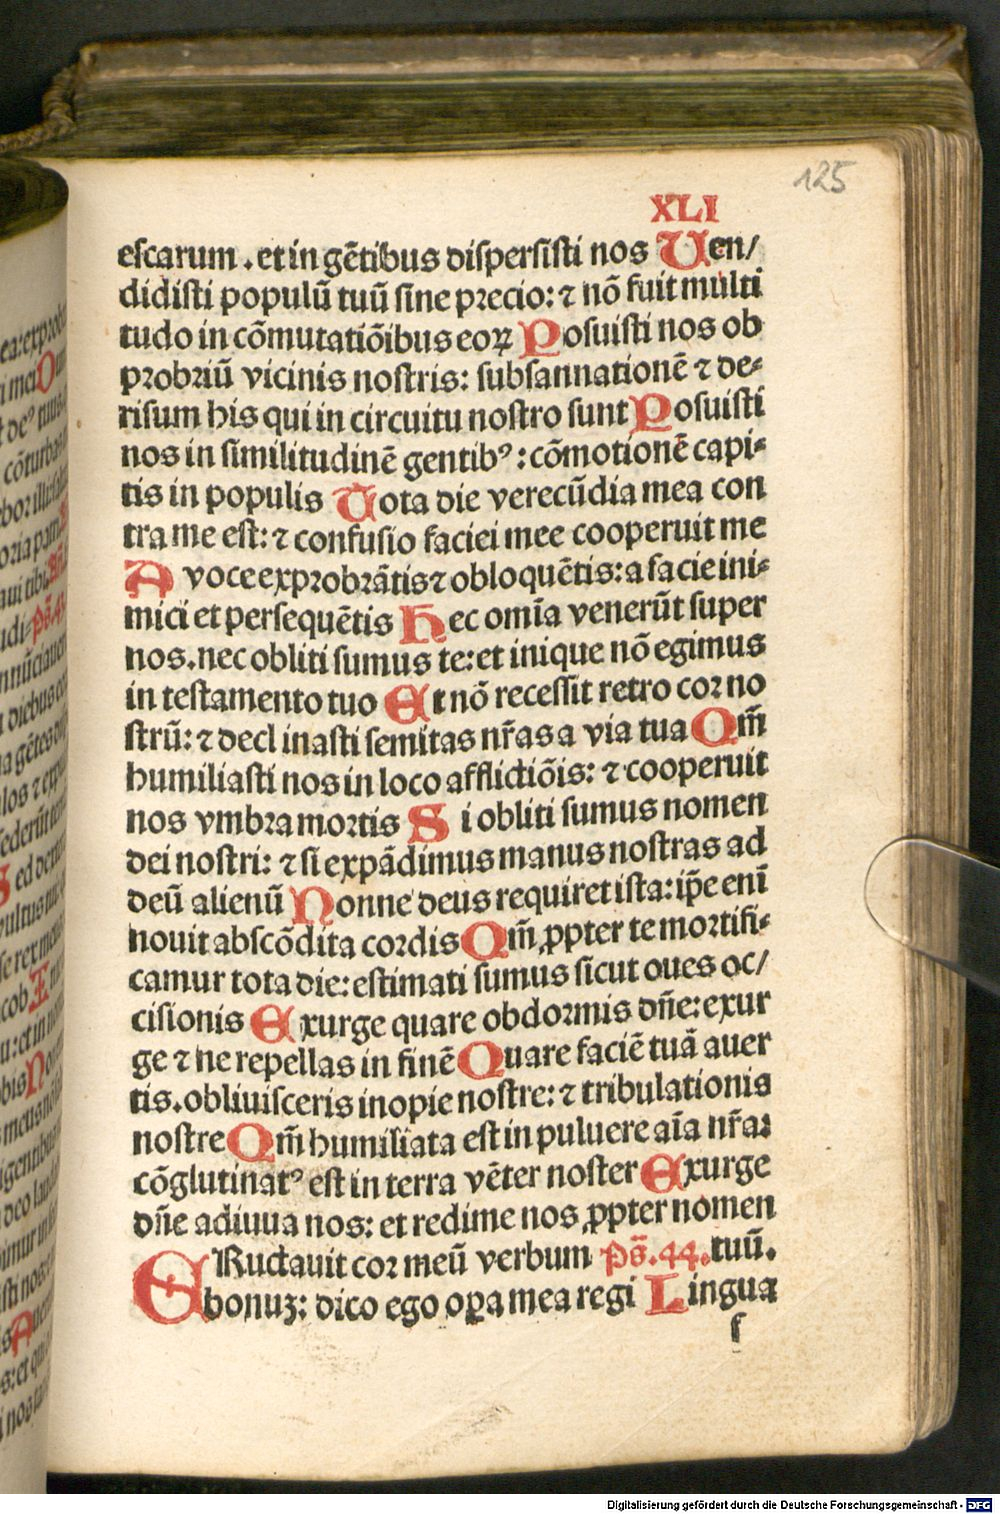 125
XLI
escarum . et in gētibus dispersisti nos Uen/
didisti populū tuū sine precio: ⁊ nō fuit multi
tudo in cōmutatiōibus eoꝝ Posuisti nos ob
probriū vicinis nostris: subsannationē ⁊ de-
risum his qui in circuitu nostro sunt Posuisti
nos in similitudinē gentibꝰ: cōmotionē capi-
tis in populis Tota die verecūdia mea con
tra me est: ⁊ confusio faciei mee cooperuit me
A voce exprobrātis ⁊ obloquētis: a facie ini-
mici et persequētis Hec omīa venerūt super
nos. nec obliti sumus te: et inique nō egimus
in testamento tuo Et nō recessit retro cor no
strū: ⁊ declinasti semitas nr̄as a via tua Qm̄
humiliasti nos in loco afflictiōis: ⁊ cooperuit
nos vmbra mortis Si obliti sumus nomen
dei nostri: ⁊ si expādimus manus nostras ad
deū alienū Nonne deus requiret ista: ip̄e enī
nouit abscōdita cordis Qm̄ ꝓpter te mortifi-
camur tota die: estimati sumus sicut oues oc/
cisionis Exurge quare obdormis dn̄e: exur
ge ⁊ ne repellas in finē Quare faciē tuā auer
tis. obliuisceris inopie nostre: ⁊ tribulationis
nostre Qm̄ humiliata est in puluere aīa nr̄a:
cōglutinatꝰ est in terra vēter noster Exurge
dn̄e adiuua nos: et redime nos ꝓpter nomen
ERuctauit cor meū verbum Ps̄. 44. tuū.
bonuꝫ: dico ego oꝑa mea regi Lingua
f
Digitalisierung gefördert durch die Deutsche Forschungsgemeinschaft - DFG